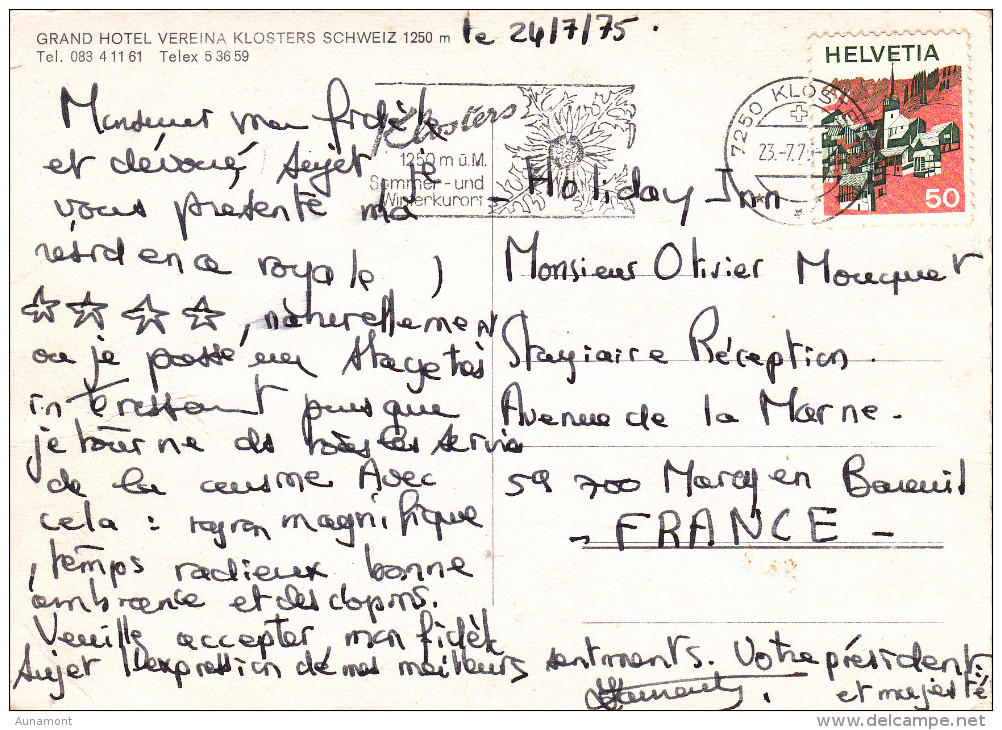 GRAND HOTEL VEREINA KLOSTERS SCHWEIZ 1250 m
Tel. 083 4 11 61 Telex 5 36 59
le 24/7/75.
HELVETIA
50
7250 KLOSTERS
23.-7.7
Klosters
1250 m ü.M.
Sommer- und
Winterkurort
Monsieur mon fidèle
et dévoué sujet, je
vous presente ma
résidence royale
, naturellement
ou je passe un stage tès
interessant puisque
je tourne ds tous les servic
de la cuisine Avec
cela : rayon magnifique
, temps radieux bonne
ambiance et des copins.
Veuille accepter mon fidèle
sujet l'expression de mes meilleurs sentiments. Votre président
et majesté
- Holiday Inn
Monsieur Olivier Mouquet
Stagiaire Réception.
Avenue de la Marne.
59 700 Marcq en Baroeuil
- FRANCE -
Aunamont
delcampe.net